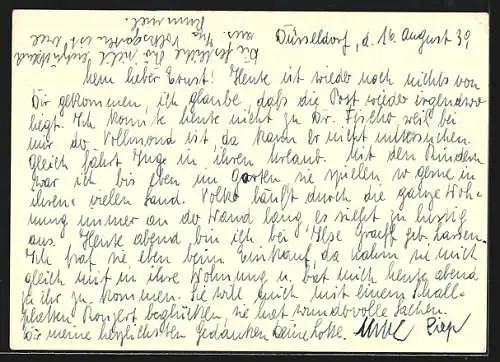 Düsseldorf, d. 16. August 39
Mein lieber Ernst! Heute ist wieder noch nichts von
Dir gekommen, ich glaube, daß die Post wieder irgendwo
liegt. Ich konnte heute nicht zu Dr. Fischo weil bei
mir da Vollmond ist da kann er nicht untersuchen.
Gleich fährt Inge in ihren Urlaub. Mit den Kindern
war ich bis eben im Garten sie spielen so gerne in
ihrem vielen Sand. Volko läuft durch die ganze Woh-
nung immer an der Wand lang, es sieht zu lustig
aus. Heute abend bin ich bei Ilse Graeff geb. Hassen.
Ich traf sie eben beim Einkauf, da nahm sie mich
gleich mit in ihre Wohnung u. bat mich heute abend
zu ihr zu kommen. Sie will mich mit einem Schall-
platten Konzert beglücken, sie hat wundervolle Sachen.
Dir meine herzlichsten Gedanken Deine Lotte.
Die festliche
aus. Im Volksgarten ist viel